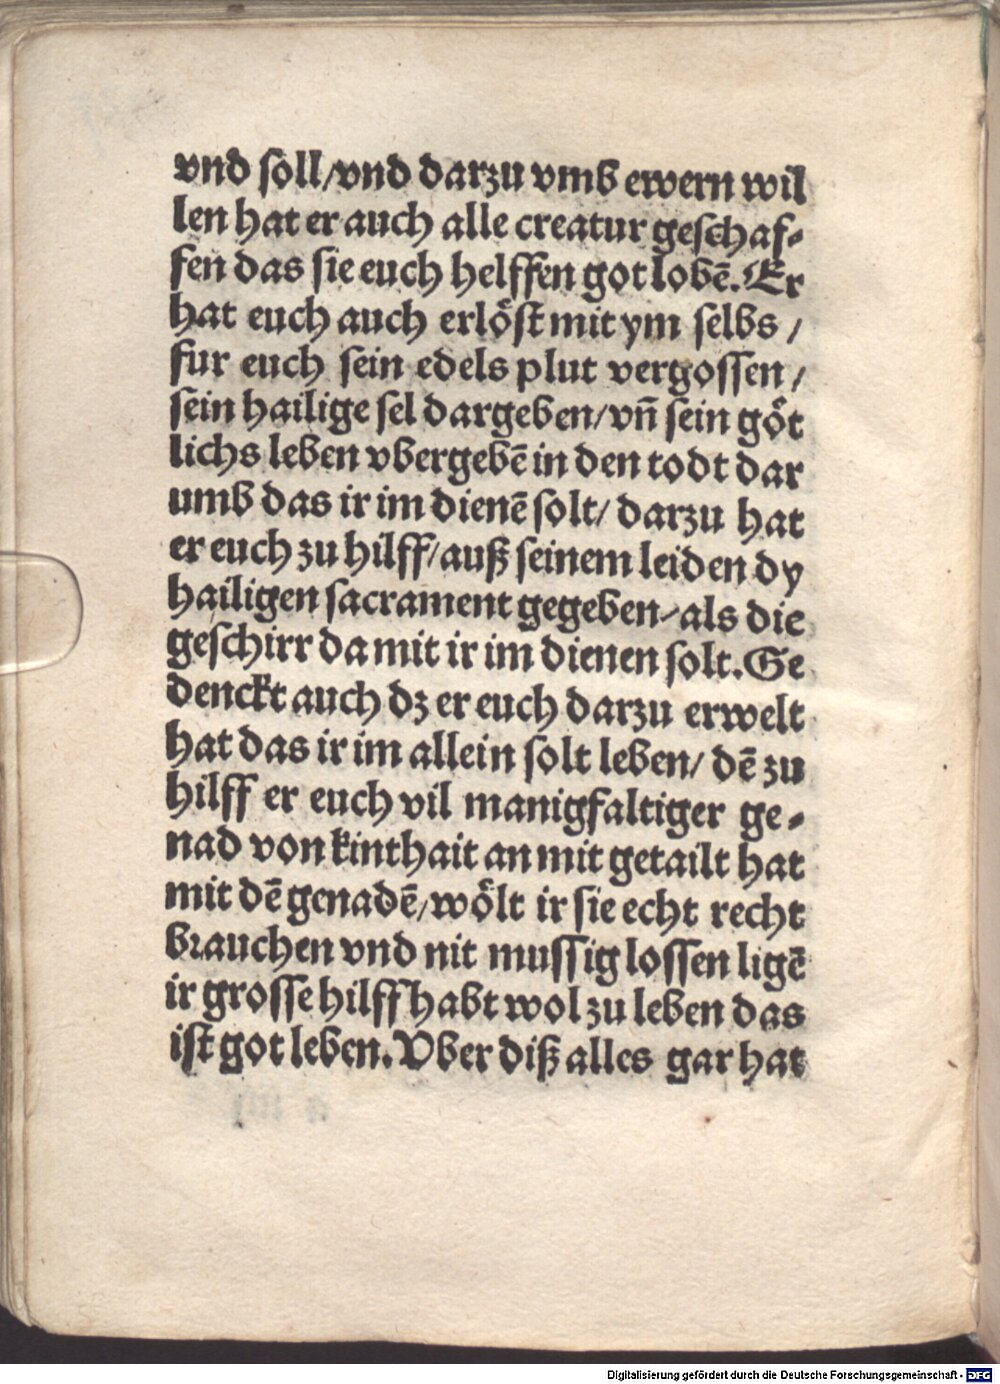 vnd soll/vnd darzu vmb ewern wil
len hat er auch alle creatur geschaf⸗
fen das sie euch helffen got lobē. Er
hat euch auch erlöst mit ym selbs /
fur euch sein edels plut vergossen /
sein hailige sel dargeben/vn̄ sein göt
lichs leben vbergebē in den todt dar
umb das ir im dienē solt/ darzu hat
er euch zu hilff/auß seinem leiden dy
hailigen sacrament gegeben/als die
geschirr da mit ir im dienen solt. Ge
denckt auch dz er euch darzu erwelt
hat das ir im allein solt leben/ dē zu
hilff er euch vil manigfaltiger ge⸗
nad von kinthait an mit getailt hat
mit dē genadē/wölt ir sie echt recht
brauchen vnd nit mussig lossen ligē
ir grosse hilff habt wol zu leben das
ist got leben. Vber diß alles gar hat
Digitalisierung gefördert durch die Deutsche Forschungsgemeinschaft - DFG